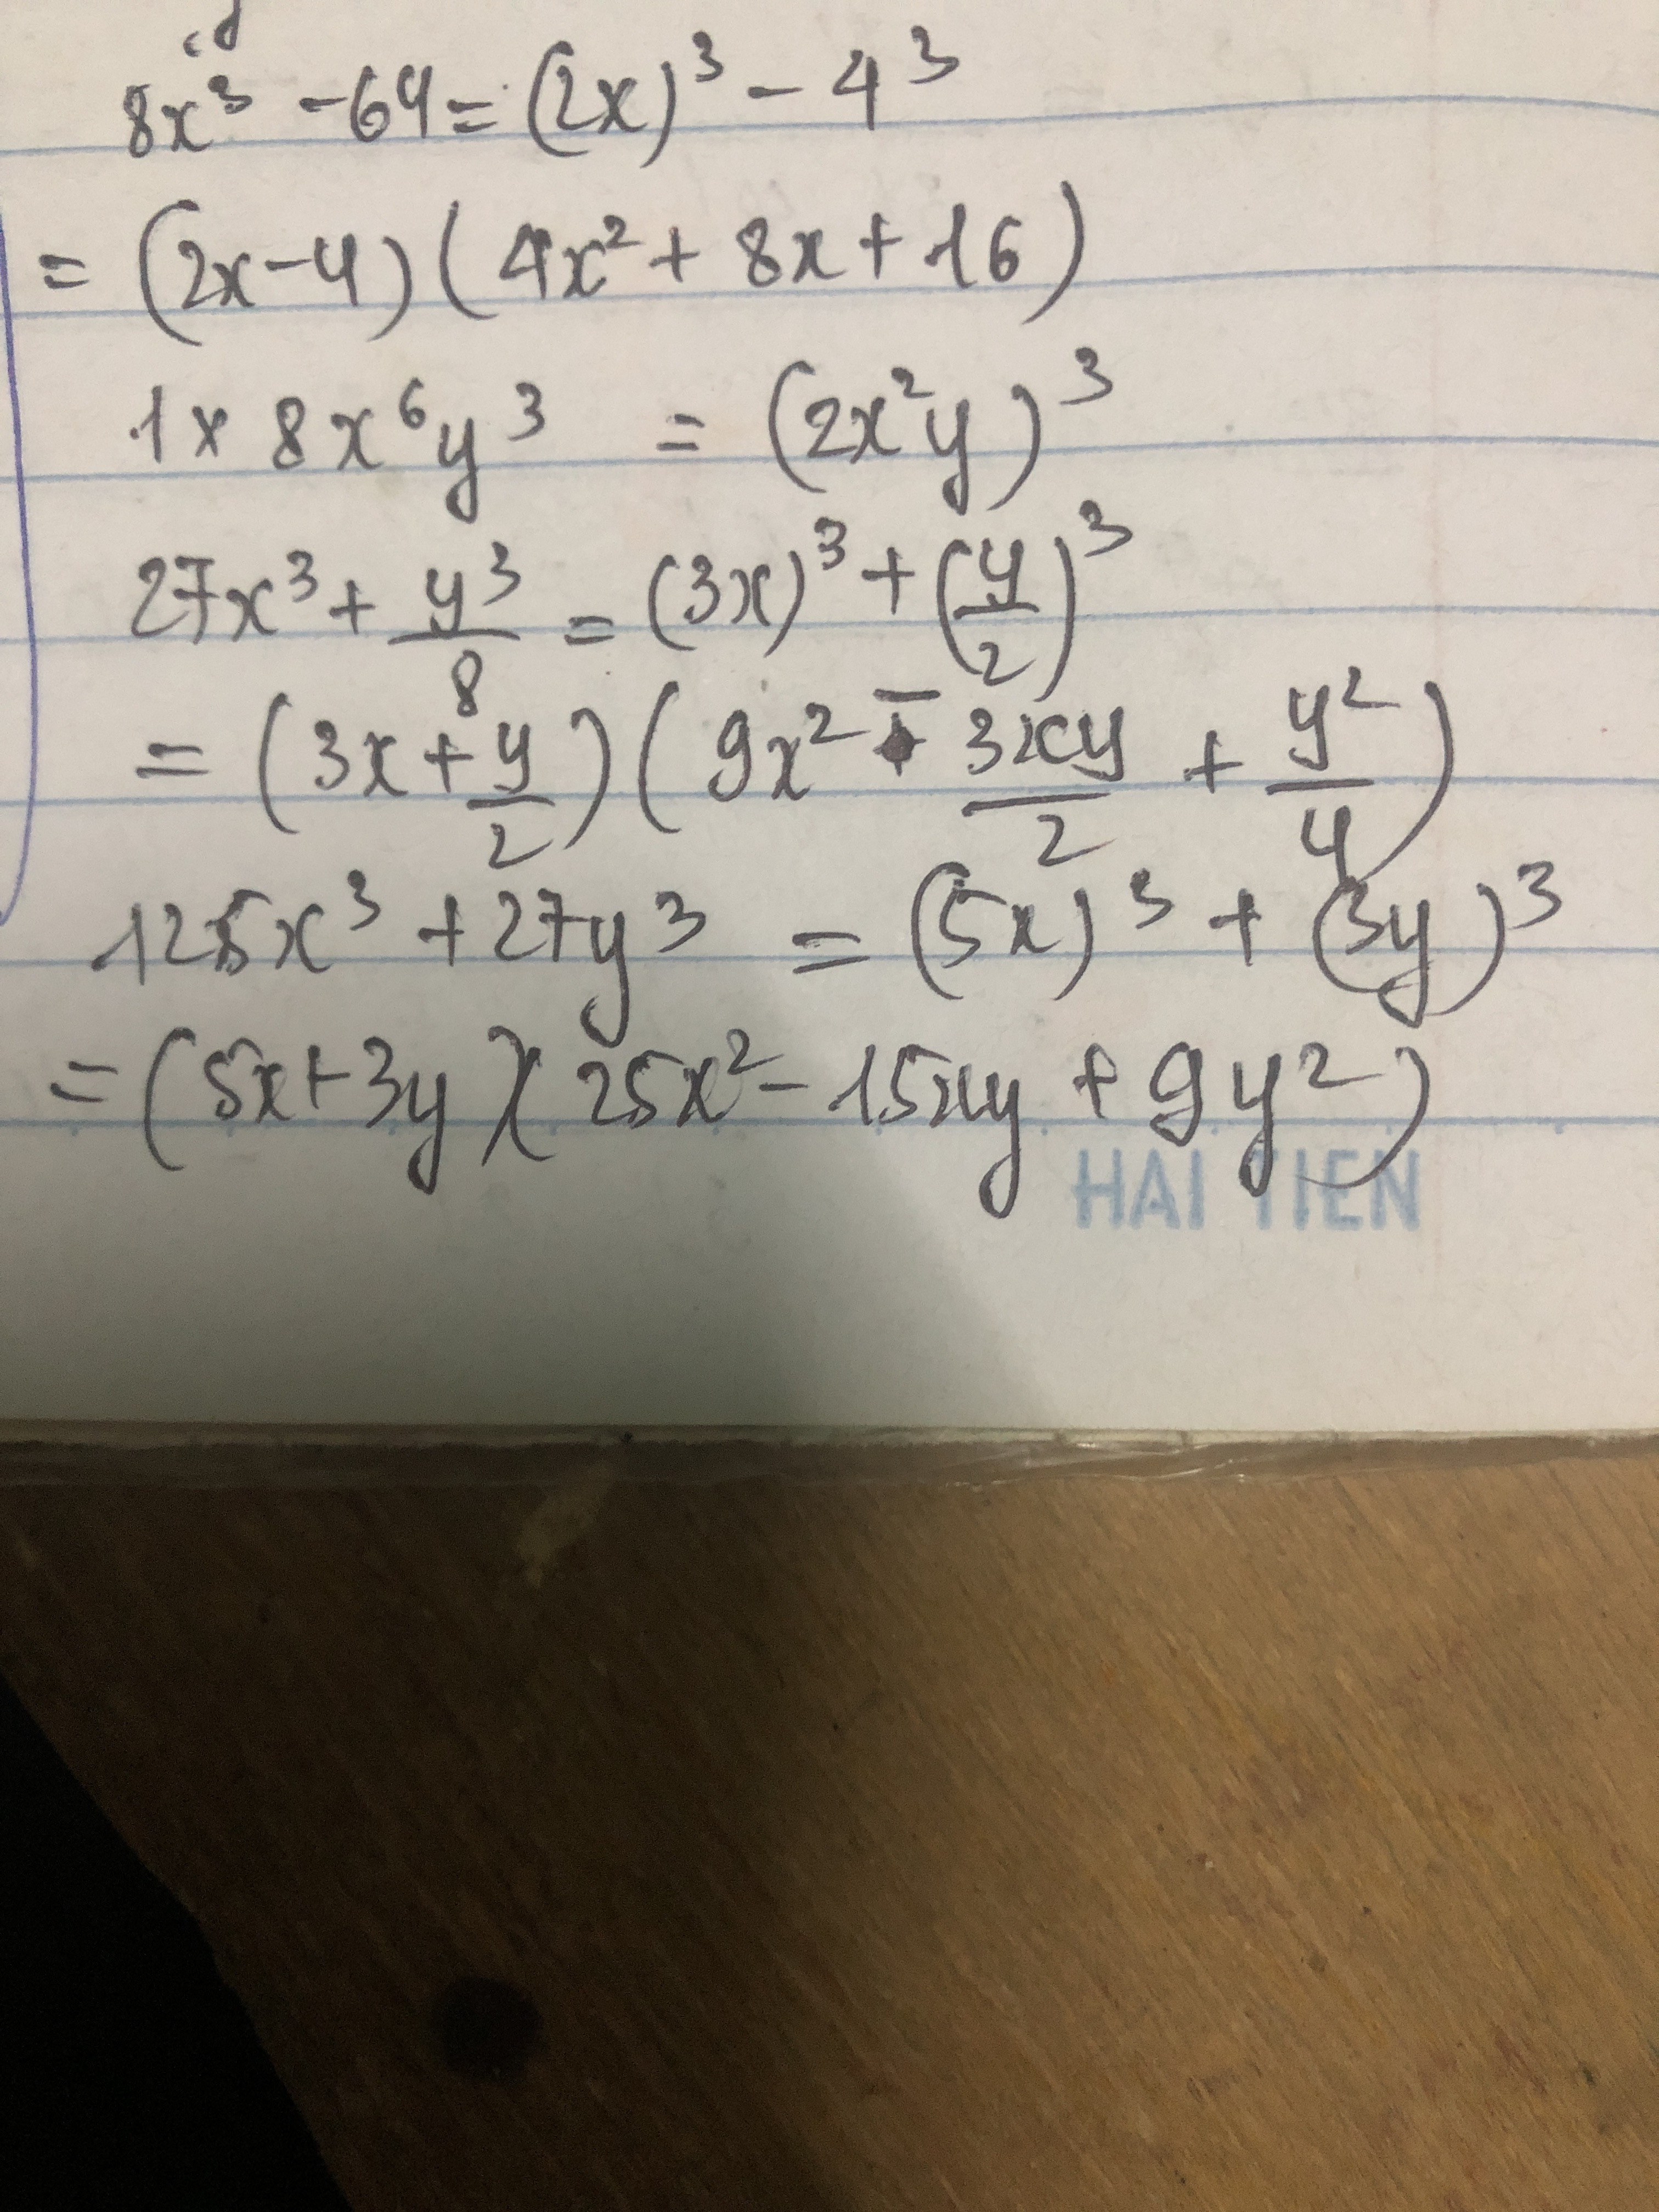 8x³ - 64 = (2x)³ - 4³
= (2x-4)(4x² + 8x + 16)
1 × 8x⁶y³ = (2x²y)³
27x³ + y³/8 = (3x)³ + (y/2)³
= (3x + y/2)(9x² - 3xy/2 + y²/4)
125x³ + 27y³ = (5x)³ + (3y)³
= (5x+3y)(25x² - 15xy + 9y²)
HAI TIEN